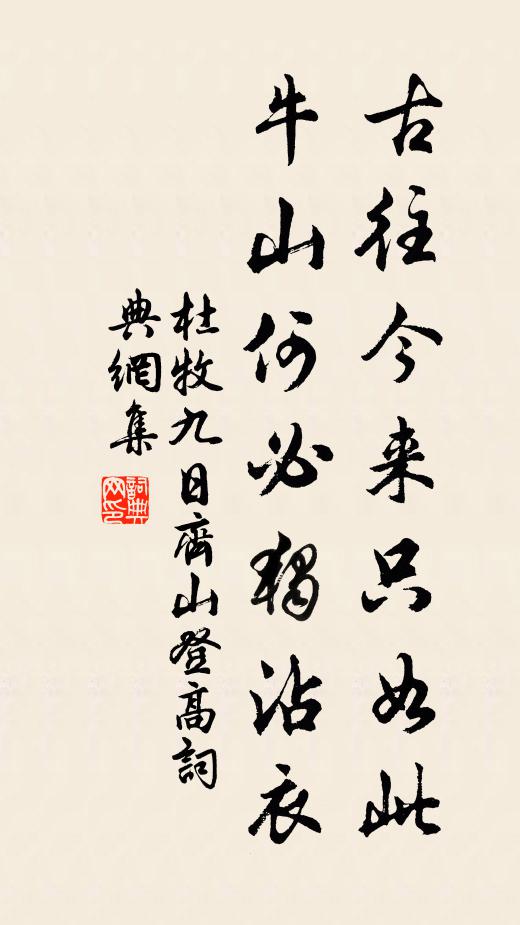 古往今来只如此
牛山何必獨沾衣
杜牧九日齊山登高詞
典網集
詞典
网印